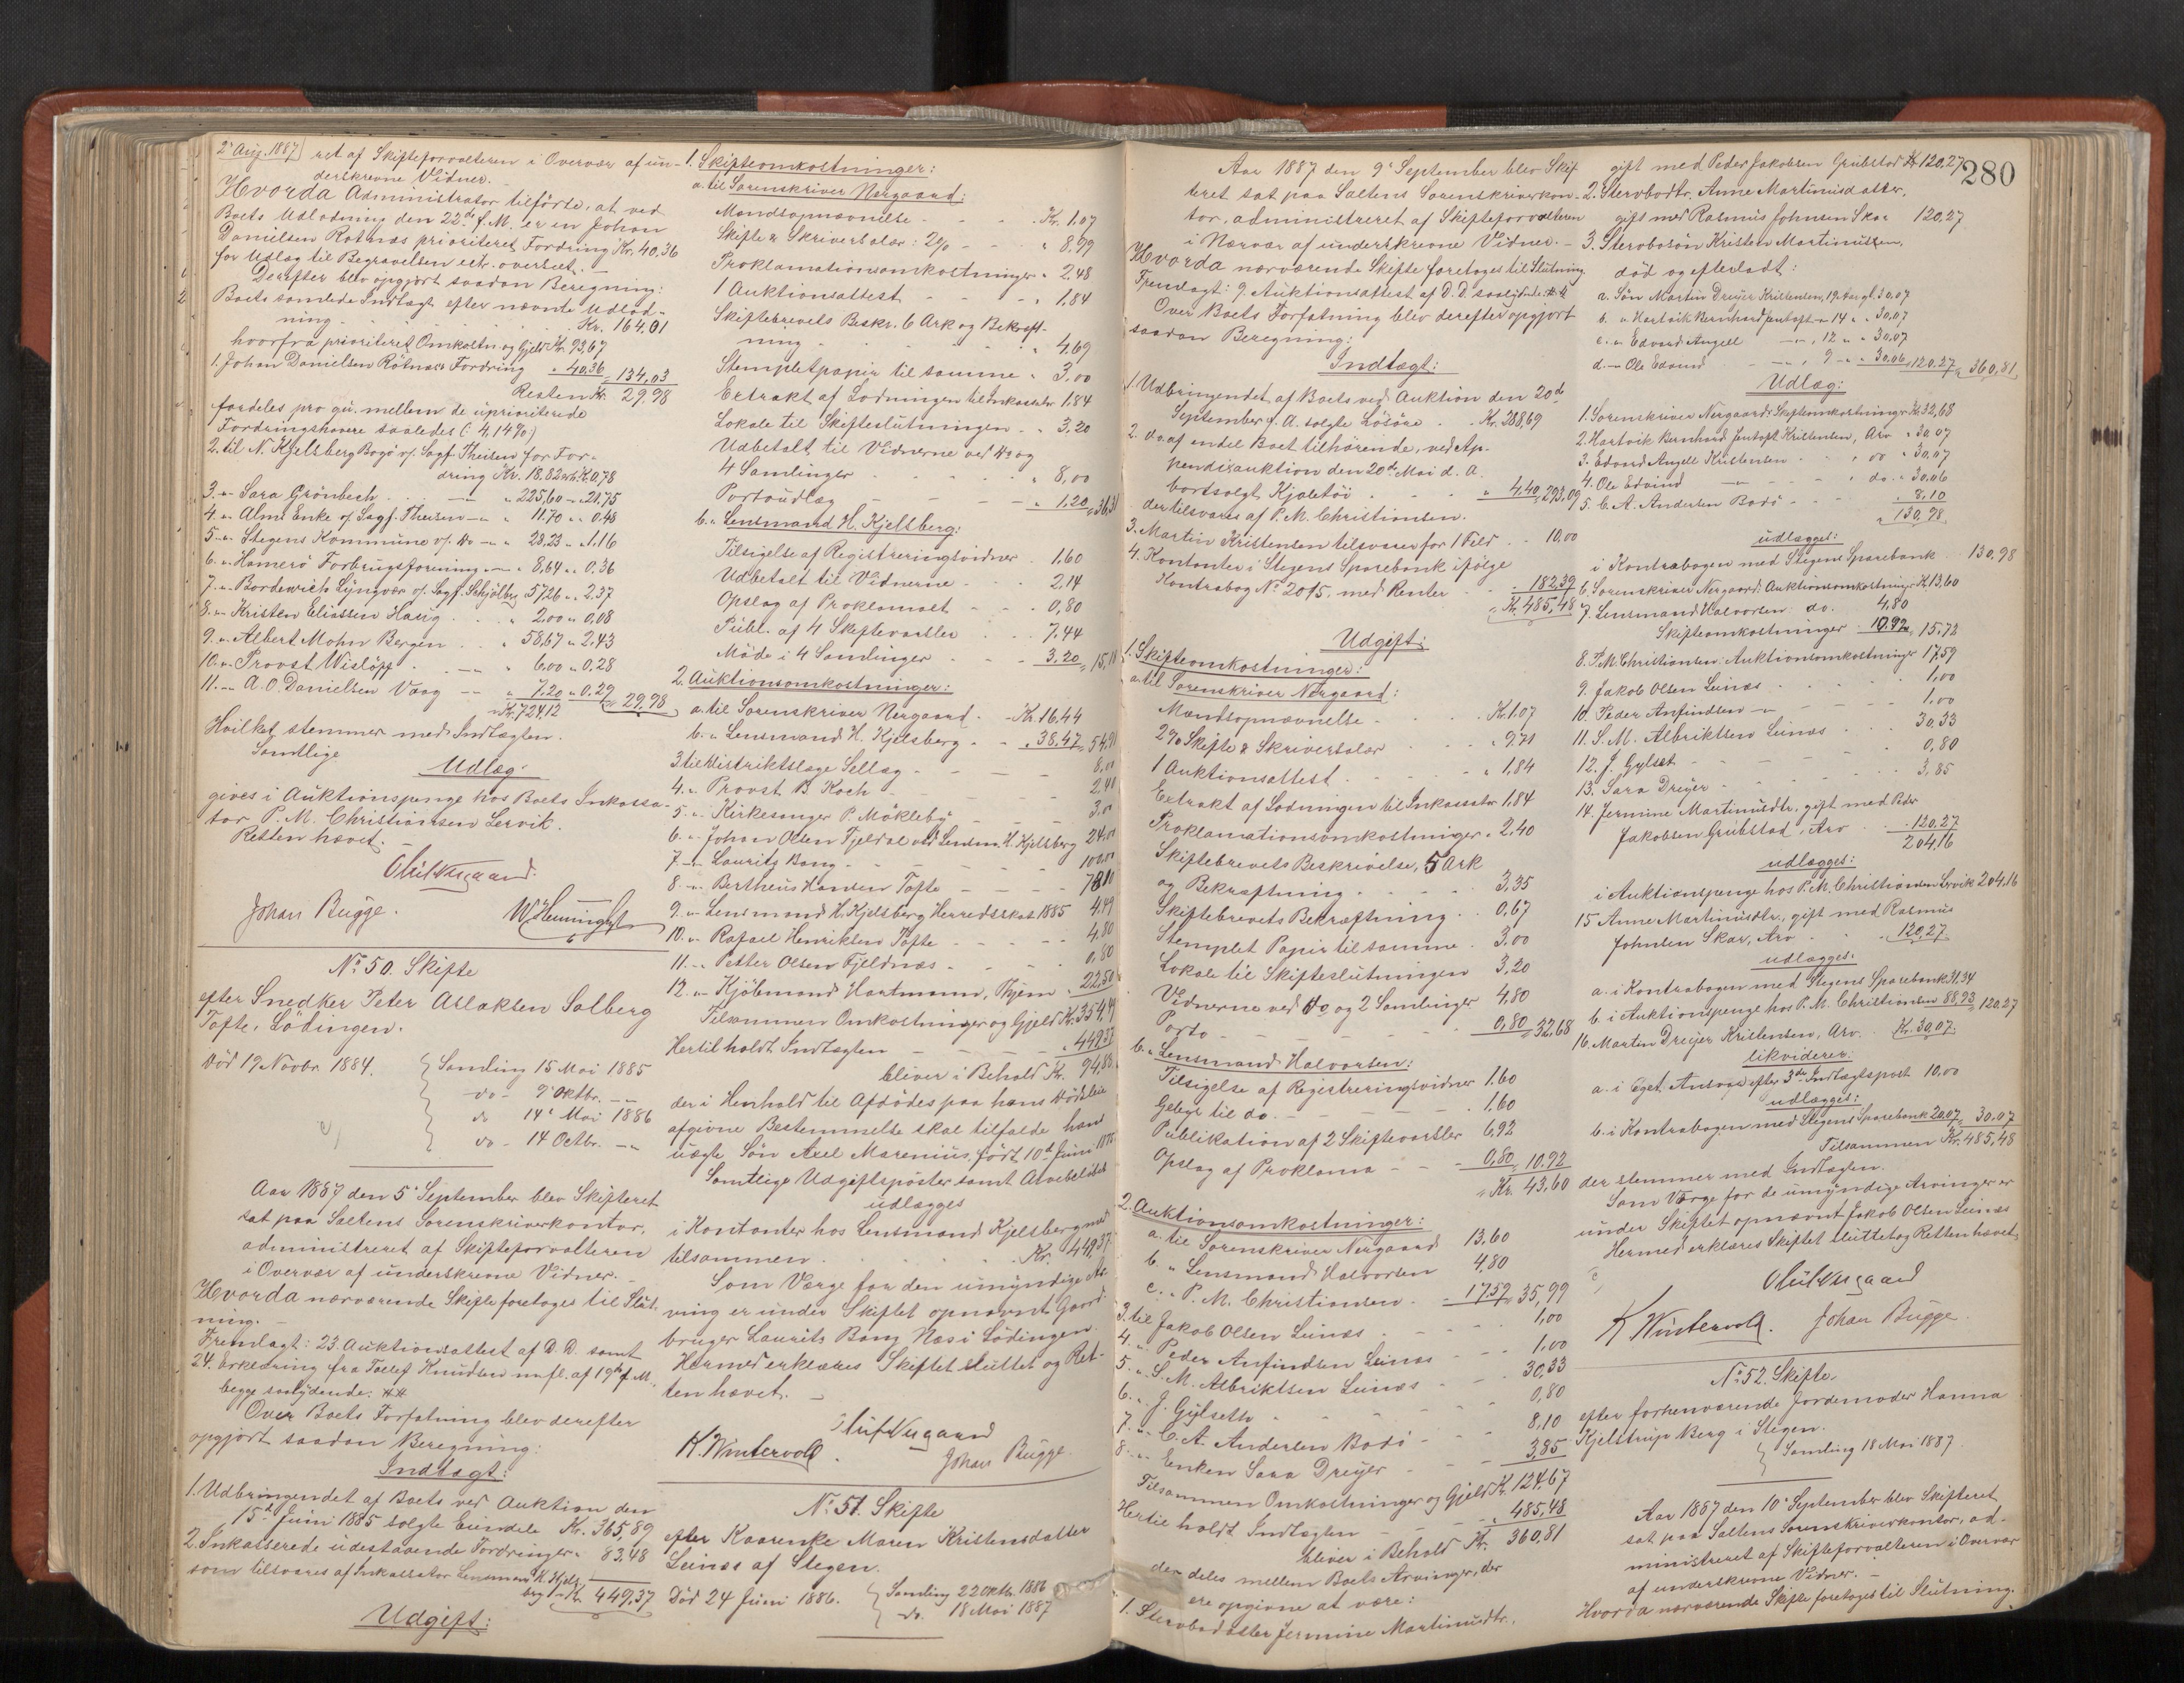 2' Aug. 1887
ret af Skifteforvalteren i Overvær af un-
derskrevne Vidner.
Hvorda Administrator tilförte, at ved
Boets Udlodning den 22de f. M. er en Johan
Danielsen Rotnæs prioriteret Fordring Kr. 40,36
for Udlæg til Begravelsen ectr. overseet.
Derefter blev opgjort saadan Beregning:
Boets samlede Indtægt efter nævnte Udlod-
ning Kr. 164.01
hvorfra prioriteret Omkostn. og Gjeld Kr. 93,67
1. Johan Danielsen Rötnæs Fordring " 40,36 = 134,03
Resten Kr. 29,98
fordeles pro qu. mellem de uprioriterede
Fordringshavere saaledes (: 4,14 %:)
2. til N. Kjelsberg Bogö v/ Sagf. Theisen for For-
dring Kr. 18.82 Kr. 0,78
3. " Sara Grönbech " 225,60 " 21,75
4. " Alms Enke v/ Sagf. Theisen " 11.70 " 0.48
5. " Stegens Kommune v/ do " 28,23 " 1.16
6. " Hamerö Forbrugsforening " 8,64 " 0.36
7. " Bordewich Lyngvær v/ Sagf. " 57,26 " 2,37
8. " Kristen Eliassen Haug " 2,00 " 0,08
9. " Albert Mohn Bergen " 58,67 " 2,43
10. " Provst Wislöff " 6,00 " 0,28
11. " A. O. Danielsen Vaag " 7.20 " 0.29 = 29,98
Kr. 724,12
Hvilket stemmer med Indtægten.
Samtlige
Udlæg
gives i Auktionspenge hos Boets Inkassa-
tor P. M. Christiansen Lervik.
Retten hævet.
Johan Bugge.
No. 50. Skifte
efter Snedker Peter Aslaksen Solberg
Tofte, Lödingen.
Död 19 Novbr. 1884.
Samling 15 Mai 1885
do - 9' Oktbr. -"-
do 14' Mai 1886
do - 14 Octbr. -"-
Aar 1887 den 5' September blev Skifteret
sat paa Saltens Sorenskriverkontor,
administreret af Skifteforvalteren
i Overvær af underskrevne Vidner.
Hvorda nærværende Skifte foretoges til Slut-
ning.
Fremlagt: 23. Auktionsattest af D.D. samt
24. Erklæring fra Tollef Knudsen m. fl. af 19de f. M.
begge saalydende. ##
Over Boets Forfatning blev derefter
opgjort saadan Beregning:
Indtægt:
1. Udbringendet af Boets ved Auktion den
15de Juni 1885 solgte Eiendele Kr. 365,89
2. Inkasserede udestaaende Fordringer " 83,48
som tilsvares af Inkassator Lensmand H. Kjels-
berg Kr. 449,37
Udgift:
1. Skifteomkostninger:
a. til Sorenskriver Nergaard:
Mandsopnævnelse Kr. 1,07
Skifte & Skriversalær: 2% " 8,99
Proklamationsomkostninger " 2,48
1 Auktionsattest " 1,84
Skiftebrevets Beskr. 6 Ark og Bekræft-
ning " 4,69
Stempletpapir til samme " 3,00
Extrakt af Lodningen til Inkassator 1,84
Lokale til Skifteslutningen " 3,20
Udbetalt til Vidnerne ved do og
4 Samlinger " 8,00
Portoudlæg " 1,20 = 36,31
b. " Lensmand H. Kjelsberg:
Tilsigelse af Registreringsvidner 1,60
Udbetalt til Vidnerne 2,14
Opslag af Proklamaet 0,80
Publ. af 4 Skiftevarsler 7,44
Möde i 4 Samlinger 3,20 = 15,18
2. Auktionsomkostninger:
a. til Sorenskriver Nergaard Kr. 16,44
b. " Lensmand H. Kjelsberg " 38,47 = 54,91
3. til Distriktslæge Sellæg 8,00
4. " Provst B. Koch 2,40
5. " Kirkesanger P. Möklebÿ 3,00
6. " Johan Olsen Fjeldal ved Lensm. H. Kjelsberg 24,00
7. " Laurits Bang 100,00
8. " Bertheus Hansen Tofte 78,10
9. " Lensmand H. Kjelsberg Herredsskat 1885 4,49
10. " Rafael Henriksen Tofte 4,80
11. " Petter Olsen Fjeldnæs 0,80
12. " Kjöbmand Hartmann, Thjem 22,50
Tilsammen Omkostninger og Gjeld Kr. 354,49
Hertil holdt Indtægten 449,37
bliver i Behold Kr. 94,88
der i Henhold til Afdödes paa hans Dödsleie
afgivne Bestemmelse skal tilfalde hans
uægte Sön Axel Marenius, födt 10de Juni
Samtlige Udgiftsposter samt Arvebelöbet
udlægges
i Kontanter hos Lensmand Kjelsberg med
tilsammen Kr. 449,37
Som Værge for den umyndige Ar-
ving er under Skiftet opnævnt Gaard-
bruger Laurits Bang Næs i Lödingen.
Hermed erklæres Skiftet sluttet og Ret-
ten hævet.
K. Wintervold. Johan Bugge
No. 51. Skifte
efter Kaarenke Maren Kristensdatter
Leinæs af Stegen.
Död 24 Juni 1886.
Samling 22 Oktb. 1886
do. 18 Mai 1887
280
Aar 1887 den 9' September blev Skif-
teret sat paa Saltens Sorenskriverkon-
tor, administreret af Skifteforvalteren
i Nærvær af underskrevne Vidner.
Hvorda nærværende Skifte foretoges til Slutning.
Fremlagt: 9. Auktionsattest af D.D. saalydende: ##
Over Boets Forfatning blev derefter opgjort
saadan Beregning:
Indtægt:
1. Udbringendet af Boets ved Auktion den 20de
September f. A. solgte Lösöre Kr. 288,69
2. do af endel Boet tilhörende, ved Ap-
pendixauktion den 20de Mai d. A.
bortsolgt Kjöletöi " 4,40 = 293,09
der tilsvares af P. M. Christiansen.
3. Martin Kristensen tilsvarer for 1 Feld 10,00
4. Kontanter i Stegens Sparebank ifölge
Kontrabog No 2015 med Renter 182,39
Kr. 485,48
Udgift:
1. Skifteomkostninger:
a. til Sorenskriver Nergaard:
Mandsopnævnelse Kr. 1.07
2% Skifte & Skriversalær " 9.71
1 Auktionsattest " 1,84
Extrakt af Lodningen til Inkassator 1,84
Proklamationsomkostninger " 2.40
Skiftebrevets Beskrivelse, 5 Ark
og Bekræftning 3,35
Skiftebrevets Bekræftning 0,67
Stemplet Papir til samme 3.00
Lokale til Skifteslutningen 3,20
Vidnerne ved do og 2 Samlinger 4,80
Porto 0,80 = 32,68
b. " Lensmand Halvorsen:
Tilsigelse af Registreringsvidner 1.60
Gebyr til do. 1.60
Publikation af 2 Skiftevarsler 6,92
Opslag af Proklama 0,80 = 10.92
Kr. 43,60
2. Auktionsomkostninger:
a. til Sorenskriver Nergaard 13,60
b. " Lensmand Halvorsen 4,80
c. " P. M. Christiansen 17,59 = 35,99
3. til Jakob Olsen Leinæs 1,00
4. " Peder Anfindsen Leinæs 1,00
5. " S. M. Albriktsen Leinæs 30,33
6. " J. Gylseth 0,80
7. " C. A. Andersen Bodö 8,10
8. " Enken Sara Dreÿer 3,85
Tilsammen Omkostninger og Gjeld Kr. 124,67
Hertil holdt Indtægten 485,48
bliver i Behold Kr. 360,81
der deles mellem Boets Arvinger, der
ere opgivne at være:
1. Stervbodatter Jermine Martinusdtr.,
gift med Peder Jakobsen Grubstad Kr 120,27
2. Stervbodtr. Anne Martinusdatter,
gift med Rasmus Johnsen Skar 120,27
3. Stervbosön Kristen Martinussen,
död og efterladt:
a. Sön Martin Dreÿer Kristensen, 19 Aar gl. 30,07
b. " Hartvik Bernhard Jentoft " 14 " " 30,07
c. " Edvard Angell " 12 " " 30,07
d. " Ole Edvind " 9 " " 30,06 = 120.27 = 360,81
Udlæg:
1. Sorenskriver Nergaards Skifteomkostninger Kr. 32,68
2. Hartvik Bernhard Jentoft Kristensen, Arv " 30,07
3. Edvard Angell Kristensen " do " 30,07
4. Ole Edvind " do. " 30,06
5. C. A. Andersen Bodö " 8,10
" 130,98
udlægges:
i Kontrabogen med Stegens Sparebank 130,98
6. Sorenskriver Nergaard: Auktionsomkostninger Kr. 13,60
7. Lensmand Halvorsen: do. 4,80
Skifteomkostninger 10.92 = 15,72
8. P. M. Christiansen: Auktionsomkostninger 17,59
9. Jakob Olsen Leinæs 1,00
10. Peder Anfindsen " 1.00
11. S. M. Albriktsen Leinæs 30,33
12. J. Gylset 0,80
13. Sara Dreyer 3,85
14. Jermine Martinusdtr., gift med Peder
Jakobsen Grubstad, Arv 120,27
204,16
udlægges:
i Auktionspenge hos P. M. Christiansen Lervik 204,16
15 Anne Martinusdtr., gift med Rasmus
Johnsen Skar, Arv 120,27
udlægges:
a. i Kontrabogen med Stegens Sparebank 31,34
b. i Auktionspenge hos P. M. Christiansen 88,93 = 120,27
16. Martin Dreijer Kristensen, Arv Kr. 30,07
likviderer:
a. i Eget Ansvar efter 3die Indtægtspost 10,00
udlægges:
b. i Kontrabogen med Stegens Sparebank 20,07 = 30,07
Tilsammen Kr. 485,48
der stemmer med Indtægten.
Som Værge for de umyndige Arvinger er
under Skiftet opnævnt Jakob Olsen Leinæs
Hermed erklæres Skiftet sluttet og Retten hævet.
K. Wintervold. Johan Bugge
No. 52. Skifte.
efter forhenværende Jordemoder Hanna
Kjelstrup Berg i Stegen.
Samling 18 Mai 1887
Aar 1887 den 10' September blev Skifteret
sat paa Saltens Sorenskriverkontor, ad-
ministreret af Skifteforvalteren i Overvær
af underskrevne Vidner.
Hvorda nærværende Skifte foretoges til Slutning.